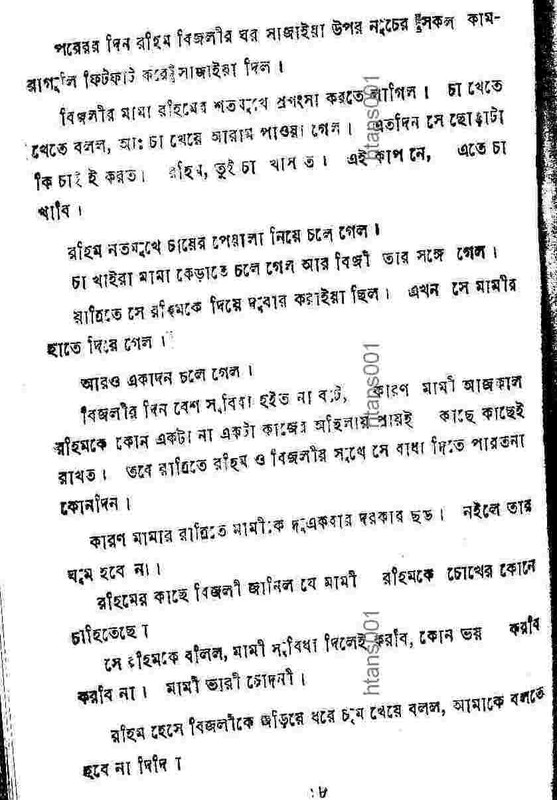 পরের দিন রহিম বিজলীর ঘর সাজাইয়া উপর নীচের সকল কাম-
রাগুলি ফিটফাট করে সাজাইয়া দিল।
বিজলীর মামা রহিমের শতমুখে প্রশংসা করতে লাগিল। চা খেতে
খেতে বলল, আঃ চা খেয়ে আরাম পাওয়া গেল। এতদিন সে ছোঁড়াটা
কি চাই ই করত। রহিম, তুই চা খাস ত। এই কাপ নে, এতে চা
খাবি।
রহিম নতমুখে চায়ের পেয়ালা নিয়ে চলে গেল।
চা খাইয়া মামা বেড়াতে চলে গেল আর বিজলী তার সঙ্গে গেল।
রাত্রিতে সে রহিমকে দিয়ে দুবার করাইয়া ছিল। এখন সে মামীর
হাতে দিয়ে গেল।
আরও একদিন চলে গেল।
বিজলীর দিন বেশ সুবিধা হইত না বটে, কারণ মামী আজকাল
রহিমকে কোন একটা না একটা কাজের অছিলায় প্রায়ই কাছে কাছেই
রাখত। তবে রাত্রিতে রহিম ও বিজলীর সুখে সে বাধা দিতে পারতনা
কোনদিন।
কারণ মামার রাত্রিতে মামীকে দুএকবার দরকার হত। নইলে তার
ঘুম হবে না।
রহিমের কাছে বিজলী জানিল যে মামী রহিমকে চোখের কোনে
চাহিতেছে।
সে রহিমকে বলিল, মামী সুবিধা দিলেই করবি, কোন ভয় করবি
করবি না। মামী ভারী চোদনী।
রহিম হেসে বিজলীকে জড়িয়ে ধরে চুম খেয়ে বলল, আমাকে বলতে
হবে না দিদি।
htans001
htans001
htans001